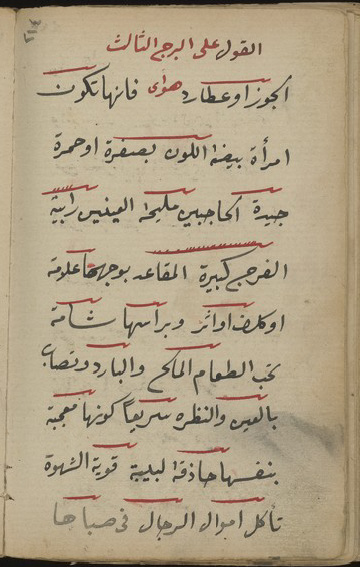 القول على البرج الثالث
الجوزا وعطارد هواى فانها تكون
امرأة بيضة اللون بصفرة او حمرة
جيدة الحاجبين مليحة العينين رابية
الفرج كبيرة المقاعد بوجهها علامة
او كلف او اثر وبراسها شامة
تحب الطعام المالح والبارد وتصاب
بالعين والنظره سريعا كونها معجبة
بنفسها حاذقة لبيبة قوية الشهوة
تأكل اموال الرجال فى صباها